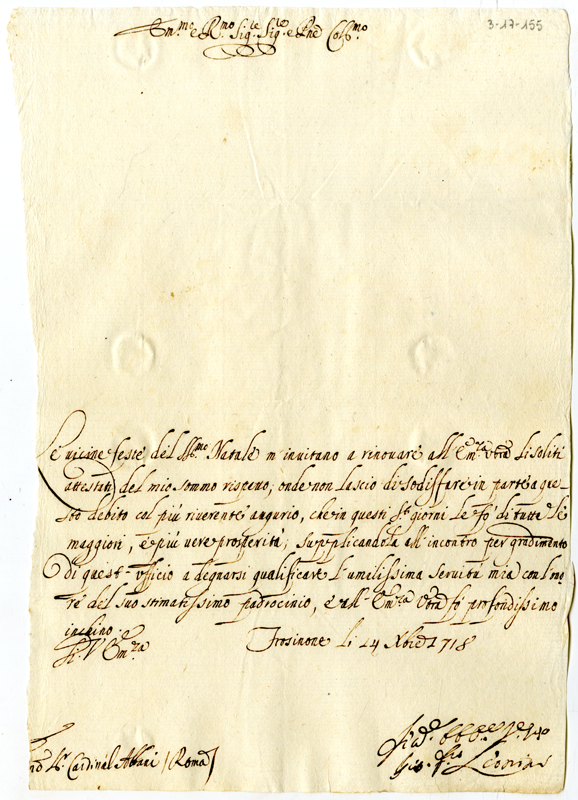 3-17-155
Em.mo e R.mo Sig.re Sig.re e Pne Col.mo
Le vicine feste del SS.mo Natale m'invitano a rinovare all'Em.za Vra li soliti
attestati del mio sommo rispetto; onde non lascio di sodisfare in parte a que-
sto debito col più riverente augurio, che in questi S.ti giorni le fò di tutte le
maggiori, e più vere prosperità; supplicandola all'incontro per gradimento
di quest'ufficio a degnarsi qualificare l'umilissima servitù mia con l'ono
re del suo stimatissimo padrocinio, e all'Em.za Vra fò profondissimo
inchino.
Di V. Em.za Frosinone li 14 Xbre 1718
Sr. Cardinal Albani (Roma)